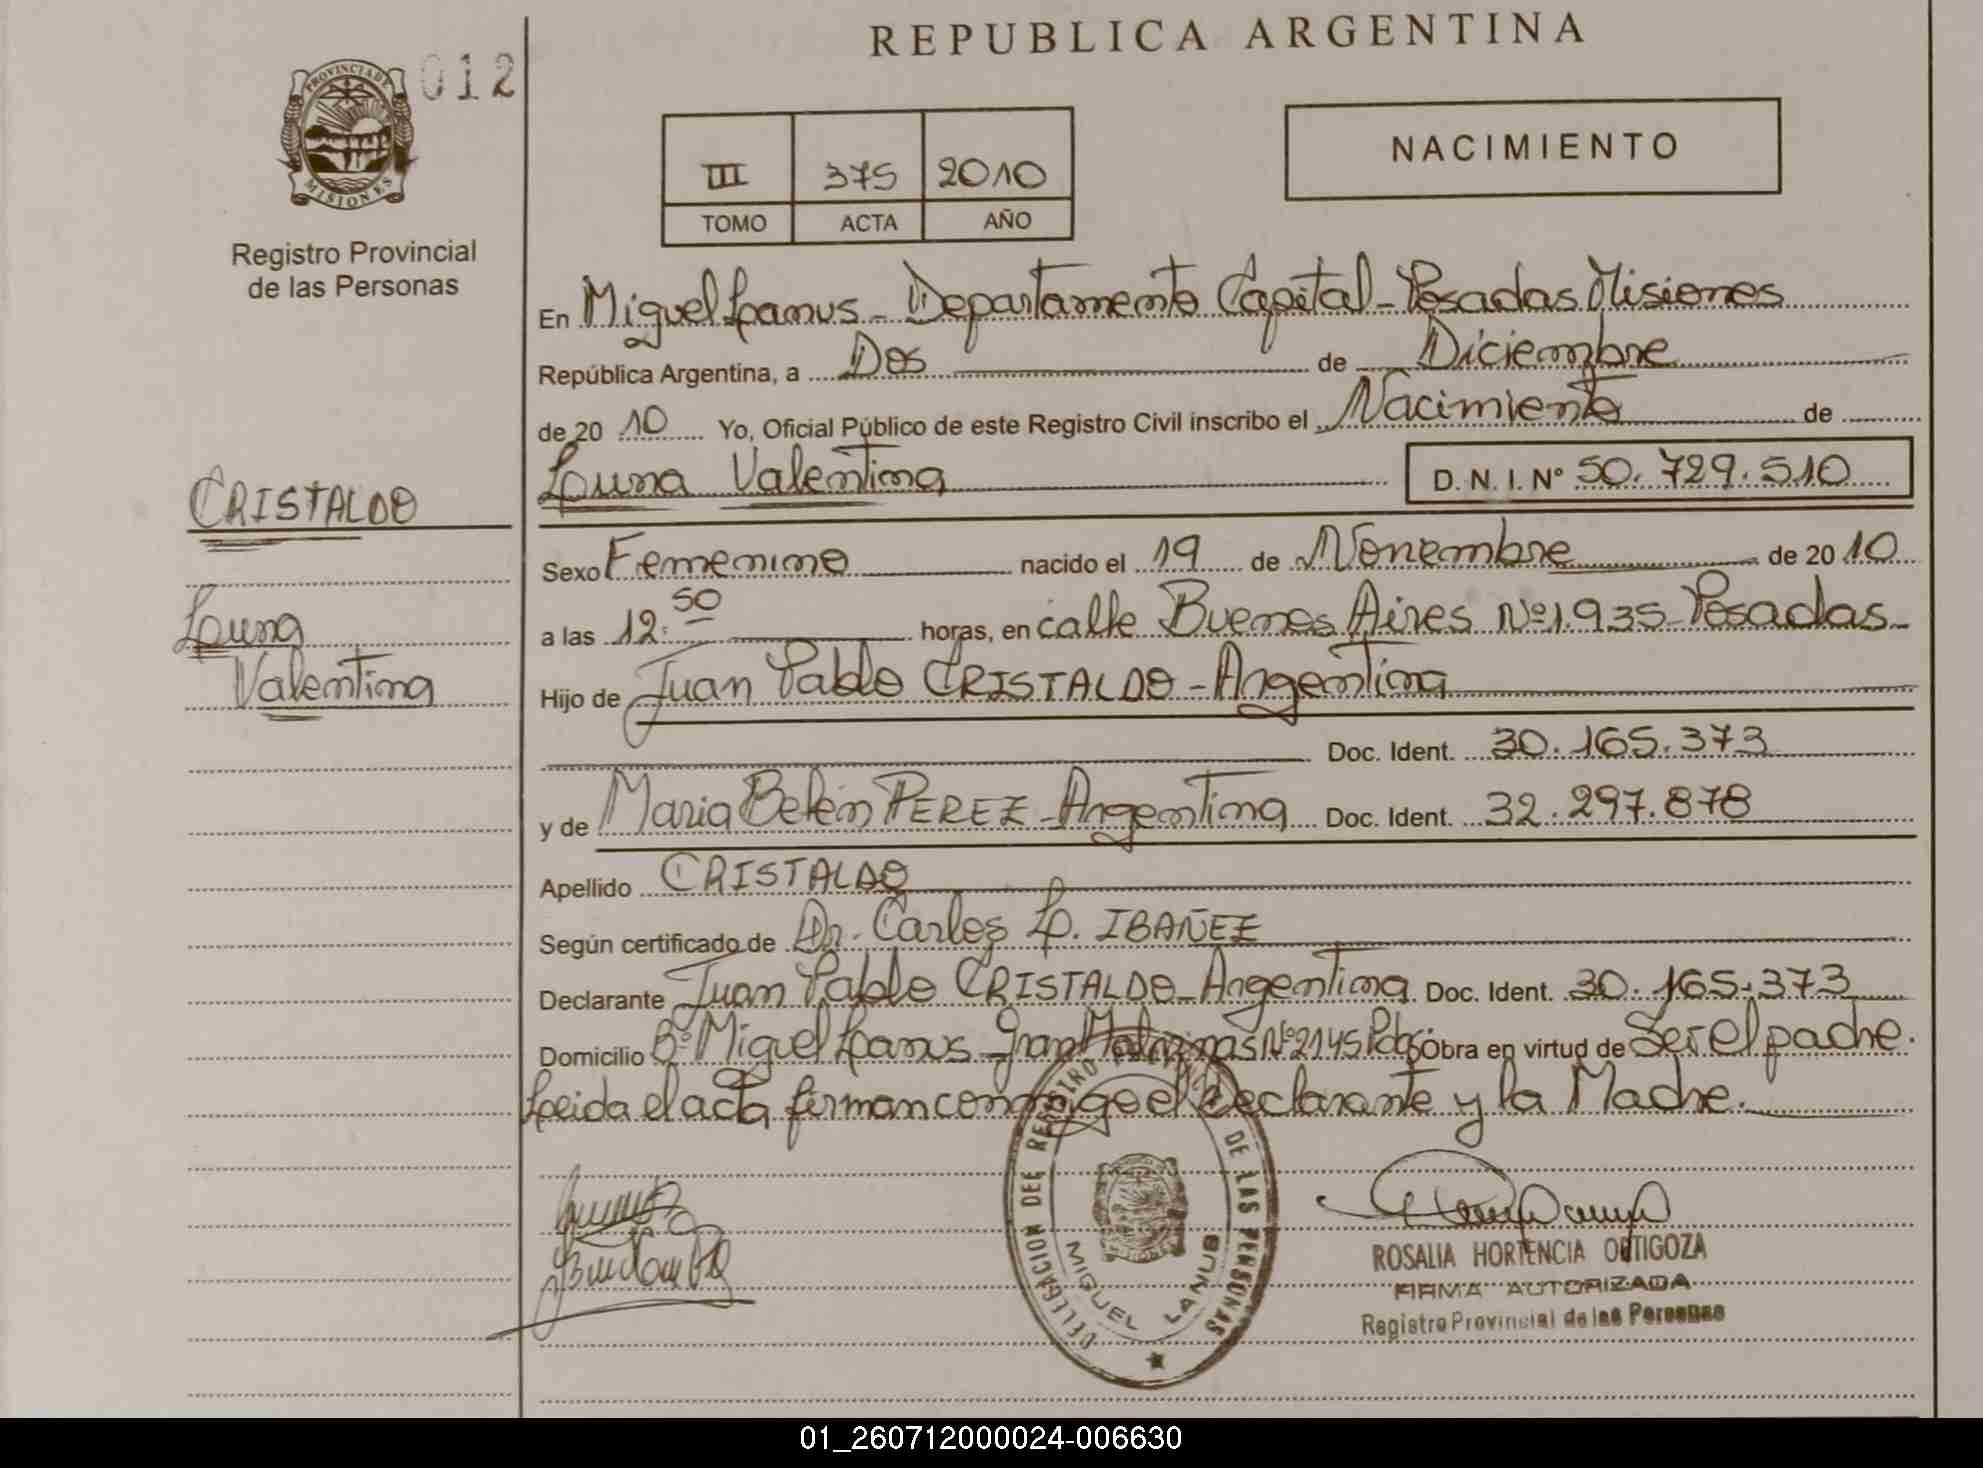 REPUBLICA ARGENTINA
012
PROVINCIA DE MISIONES
Registro Provincial
de las Personas
III 375 2010
TOMO ACTA AÑO
NACIMIENTO
En Miguel Lanus - Departamento Capital - Posadas Misiones
República Argentina, a Dos de Diciembre
de 2010 Yo, Oficial Público de este Registro Civil inscribo el Nacimiento de
Luna Valentina D. N. I. Nº 50.729.510
CRISTALDO
Luna
Valentina
Sexo Femenino nacido el 19 de Noviembre de 2010
a las 12:50 horas, en calle Buenos Aires Nº 1.935 - Posadas -
Hijo de Juan Pablo CRISTALDO - Argentina
Doc. Ident. 30.165.373
y de Maria Belén PEREZ - Argentina Doc. Ident. 32.297.878
Apellido CRISTALDO
Según certificado de Dr. Carlos L. IBAÑEZ
Declarante Juan Pablo CRISTALDO - Argentina Doc. Ident. 30.165.373
Domicilio Bº Miguel Lanus - Gran Malvinas Nº 2145 Pdas Obra en virtud de Ser el padre.
Leida el acta firman conmigo el declarante y la Madre.
DELEGACION DEL REGISTRO PROVINCIAL DE LAS PERSONAS
MIGUEL LANUS
ROSALIA HORTENCIA ORTIGOZA
FIRMA AUTORIZADA
Registro Provincial de las Personas
01_260712000024-006630